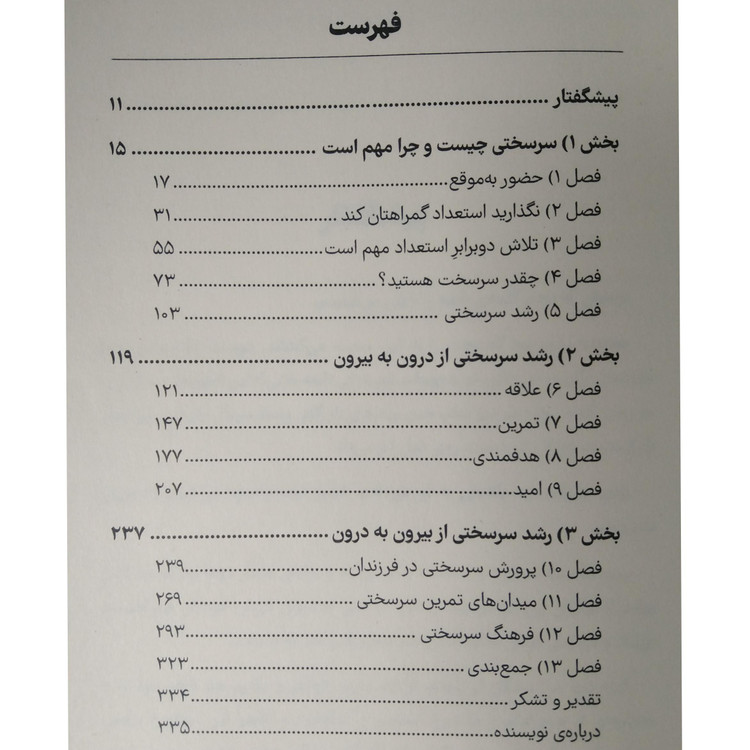 فهرست
پیشگفتار ........................................................................... ۱۱
بخش ۱) سرسختی چیست و چرا مهم است ................................ ۱۵
فصل ۱) حضور به‌موقع................................................ ۱۷
فصل ۲) نگذارید استعداد گمراهتان کند ............................. ۳۱
فصل ۳) تلاش دوبرابرِ استعداد مهم است......................... ۵۵
فصل ۴) چقدر سرسخت هستید؟ .................................. ۷۳
فصل ۵) رشد سرسختی ............................................ ۱۰۳
بخش ۲) رشد سرسختی از درون به بیرون ................................. ۱۱۹
فصل ۶) علاقه ....................................................... ۱۲۱
فصل ۷) تمرین....................................................... ۱۴۷
فصل ۸) هدفمندی.................................................. ۱۷۷
فصل ۹) امید......................................................... ۲۰۷
بخش ۳) رشد سرسختی از بیرون به درون ............................... ۲۳۷
فصل ۱۰) پرورش سرسختی در فرزندان........................... ۲۳۹
فصل ۱۱) میدان‌های تمرین سرسختی ............................. ۲۶۹
فصل ۱۲) فرهنگ سرسختی ....................................... ۲۹۳
فصل ۱۳) جمع‌بندی ................................................ ۳۲۳
تقدیر و تشکر ........................................................ ۳۳۴
درباره‌ی نویسنده..................................................... ۳۳۵